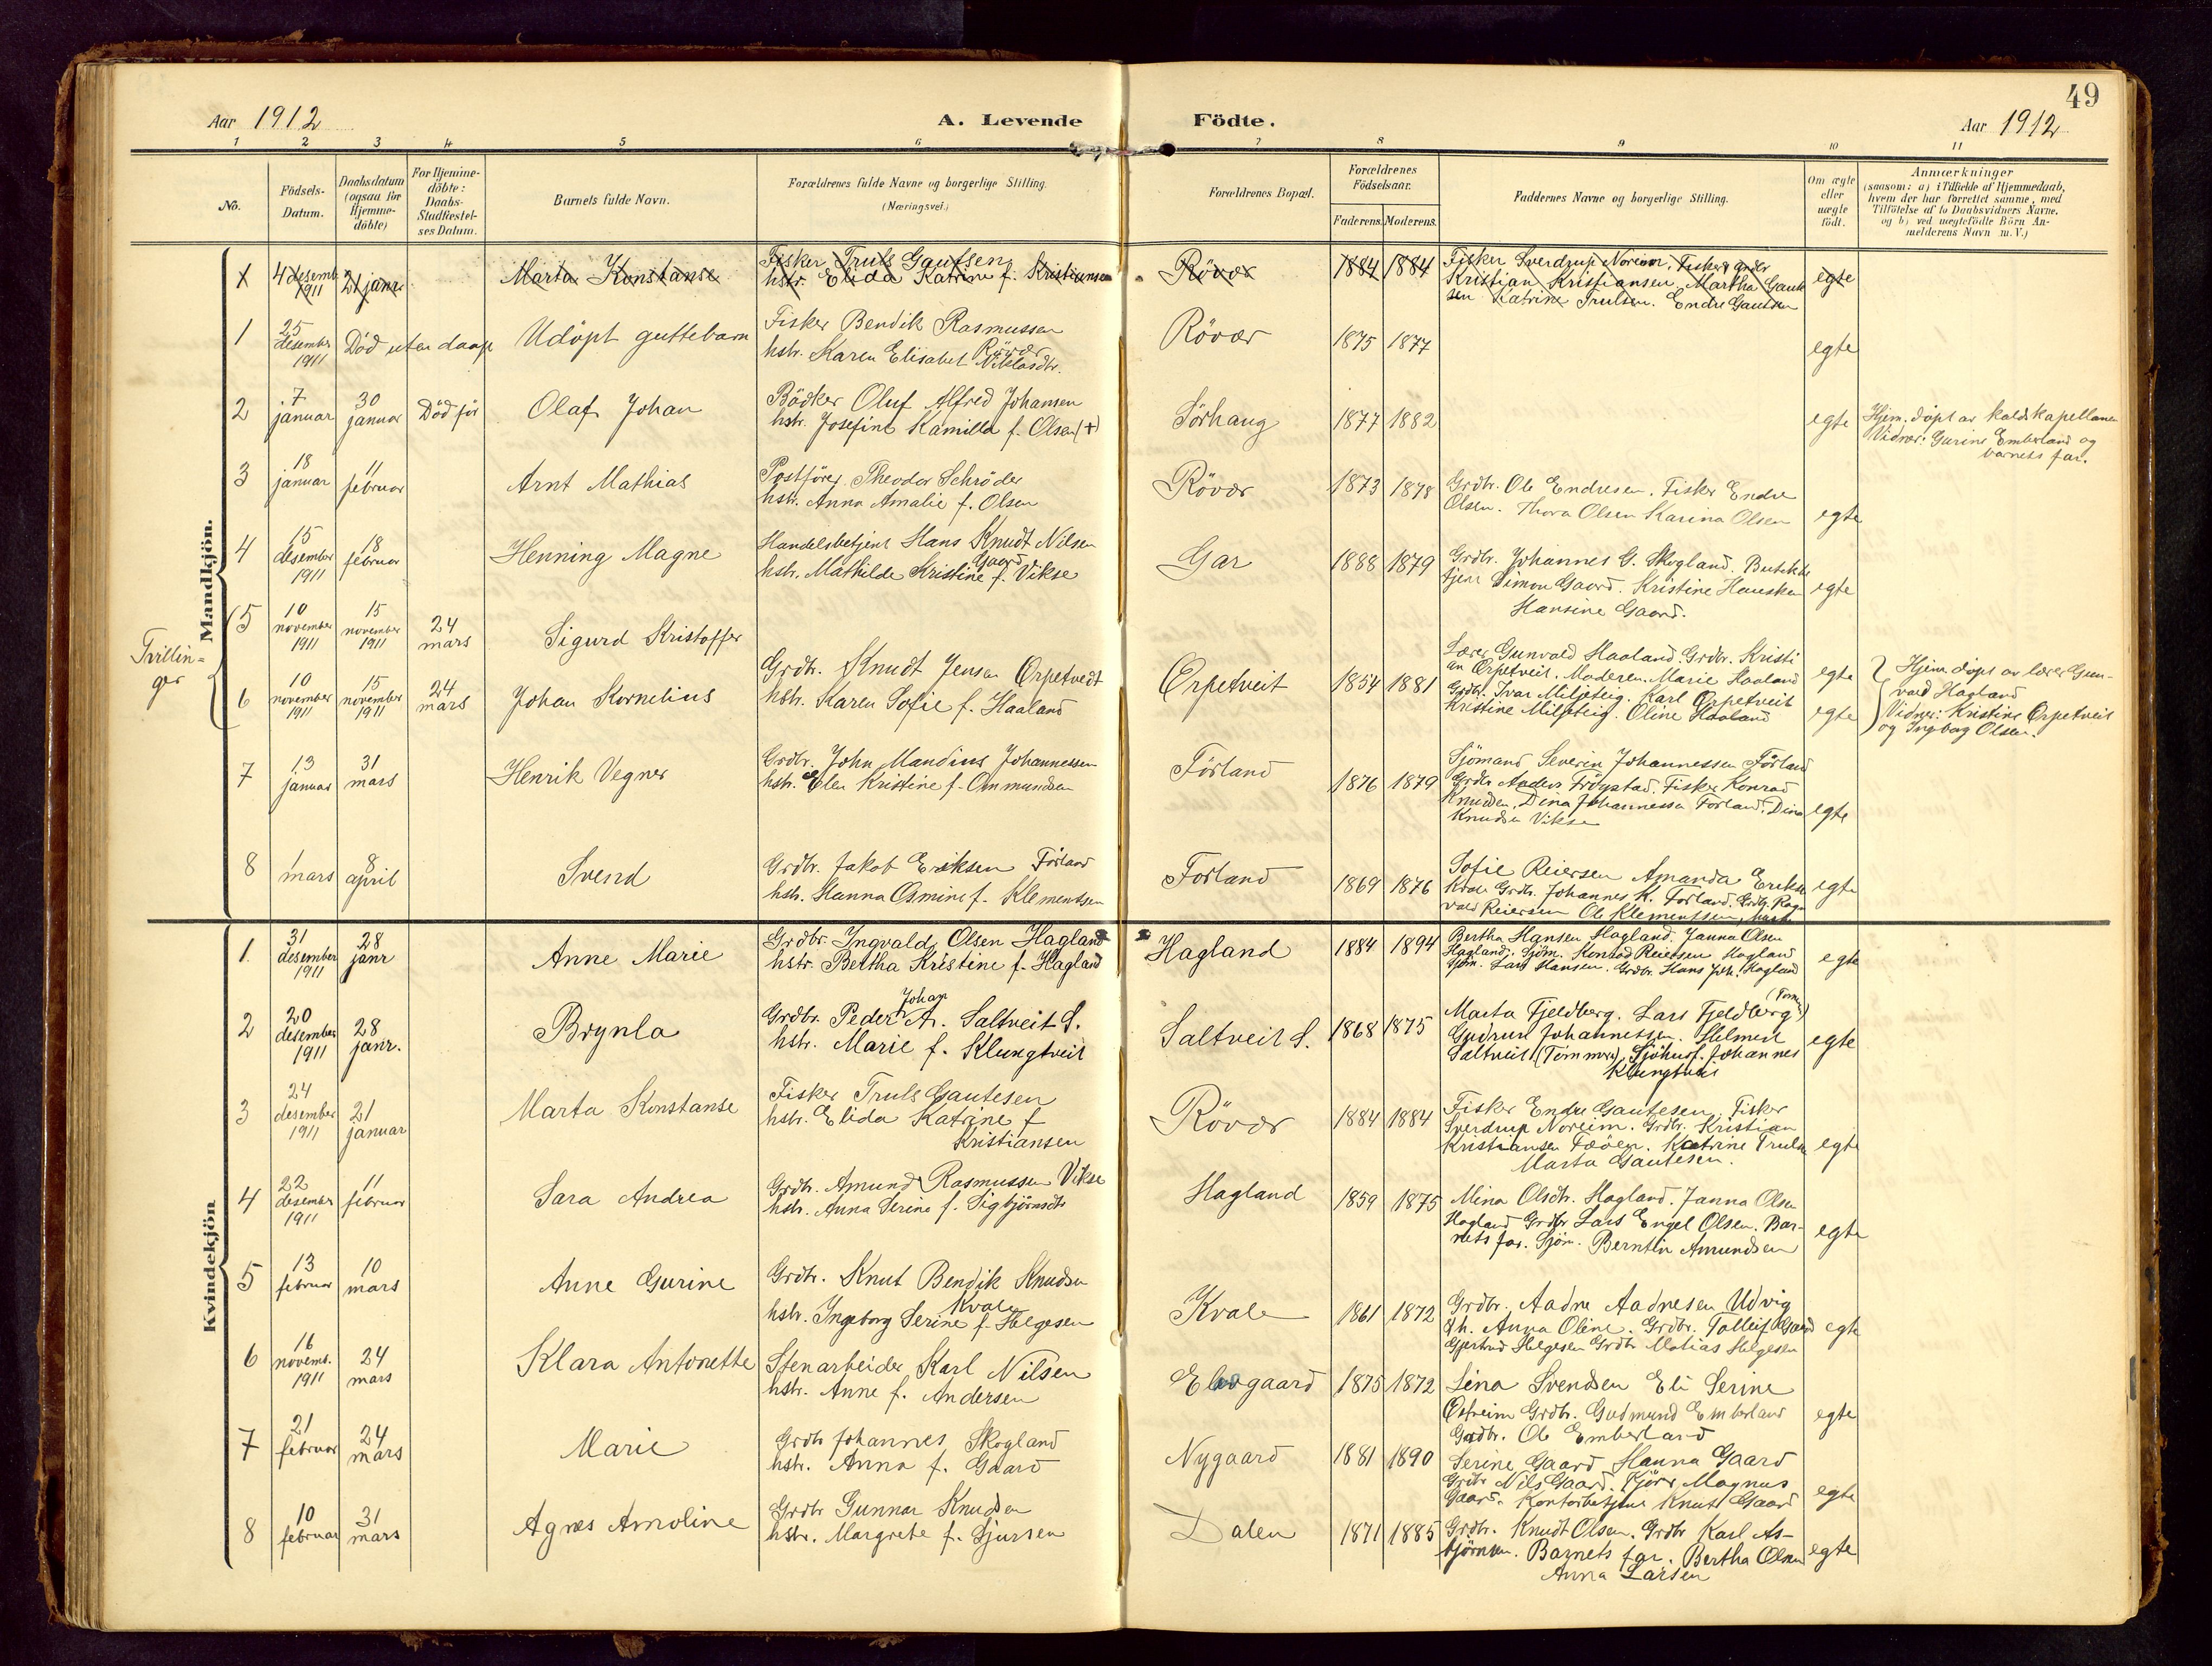 49
Aar 1912
A. Levende Födte.
Aar 1912
1 2 3 4 5 6 7 8 9 10 11
No.
Födsels-
Datum.
Daabsdatum
(ogsaa for
Hjemme-
döbte)
For Hjemme-
döbte:
Daabs-
Stadfæstel-
ses Datum.
Barnets fulde Navn.
Forældrenes fulde Navne og borgerlige Stilling.
(Næringsvei.)
Forældrenes Bopæl.
Forældrenes
Födselsaar.
Faderens. Moderens.
Faddernes Navne og borgerlige Stilling.
Om ægte
eller
uægte
födt.
Anmærkninger
(saasom: a) i Tilfælde af Hjemmedaab,
hvem der har forrettet samme, med
Tilföielse af to Daabsvidners Navne.
og b) ved uægtefödte Börn An-
melderens Navn m. V.)
Mandkjön.
1 4 desemb. 1911 21 janr Marta Konstanse
Fisker Truls Gautsen
hstr. Elida Katrine f. Kristiansen
Rövær 1884 1884
Fisker Sverdrup Noreim, Fisker
Kristian Kristiansen, Martha Gaut
sen Katrine Trulsen. Endre Gautsen
egte
1 25 desember 1911 Död uten daap Udöpt guttebarn
Fisker Bendik Rasmussen
Rövær
hstr. Karen Elisabet Niklasdtr.
Rövær 1875 1877 egte
2 7 januar 30 januar Död för Olaf Johan
Bödker Oluf Alfred Johansen
hstr. Josefine Kamilla f. Olsen (+)
Sörhaug 1877 1882 egte
Hjem. döpt av kaldskapellanen
Vidner: Gurine Emberland og
barnets far.
3 18 januar 11 februar Arnt Mathias
Postförer Theodor Schröder
hstr. Anna Amalie f. Olsen
Rövær 1873 1878
Grdbr. Ole Endresen. Fisker Endre
Olsen. Thora Olsen Karina Olsen
egte
4 15 desember 1911 18 februar Henning Magne
Handelsbetjent Hans Knudt Nilsen
Gaard
hstr. Mathilde Kristine f. Vikse
Gar 1888 1879
Grdbr. Johannes G. Skogland. Butikkb
tjent Simon Gaard. Kristine Hauske
Hansine Gaard.
egte
Tvillin-
ger
5 10 november 1911 15 november 1911 24 mars Sigurd Kristoffer
6 10 november 1911 15 november 1911 24 mars Johan Kornelius
Grdbr. Knudt Jensen Orpetvedt
hstr. Karen Sofie f. Haaland
Orpetveit 1854 1881
Lærer Gunvald Haaland. Grdbr. Kristi
an Orpetveit. Moderen. Marie Haaland
Grdbr. Ivar Miljeteig. Karl Orpetveit
Kristine Miljeteig. Oline Haaland
egte
egte
Hjem. döpt av lærer Gun-
vald Hagland
Vidner: Kristine Orpetveit
og Ingborg Olsen.
7 13 januar 31 mars Henrik Vegner
Grdbr. John Mandius Johannessen
hstr. Elen Kristine f. Ommundsen
Förland 1876 1879
Sjömand Severin Johannessen Förland
Grdbr. Anders Fröystad. Fisker Konrad
Knudsen, Dina Johannessen Förland. Dina
Knudsen Vikse
egte
8 1 mars 8 april Svend
Grdbr. Jakob Eriksen Förland
hstr. Hanna Osmine f. Klementsen
Forland 1869 1876
Sofie Reiersen Amanda Eriks
Kvale Grdbr. Johannes K. Forland. Grdbr. Rag-
vald Reiersen Ole Klementsen,
egte
Kvindekjön
1. 31 desember 1911 28 janr Anne Marie
Grdbr. Ingvald Olsen Hagland
hstr. Bertha Kristine f. Hagland
Hagland 1884 1894
Bertha Hansen Hagland. Janna Olsen
Hagland. Sjöm. Konrad Reiersen Hagland
Sjöm. Lars Hansen. Grdbr. Hans Joh. Hagland
egte
2 20 desember 1911 28 janr. Brynla
Johan
Grdbr. Peder A. Saltveit S.
hstr. Marie f. Klungtveit
Saltveit S. 1868 1875
Marta Fjeldberg. Lars Fjeldberg
Gudrun Johannessen. Helmed
Saltveit (Tömmerm), Sjöhusf. Johannes
Klungtveit
egte
3 24 desember 1911 21 januar Marta Konstanse
Fisker Truls Gautesen
hstr. Elida Katrine f
Kristiansen
Rövær 1884 1884
Fisker Endre Gautesen, Fisker
Sverdrup Noreim. Grdbr. Kristian
Kristiansen Fæöen. Katrine Truls
Marta Gautesen.
egte
4 22 desember 1911 11 februar Sara Andrea
Grdbr. Amund Rasmussen Vikse
hstr. Anna Serine f. Sigbjörnsdtr
Hagland 1859 1875
Mina Olsdtr. Hagland. Janna Olsen
Hagland Grdbr Lars Engel Olsen. Bar-
nets far. Sjöm. Berntin Amundsen
egte
5 13 februar 10 mars Anne Gurine
Grdbr. Knut Bendik Knudsen
Kvale
hstr. Ingeborg Serine f. Helgesen
Kvale 1861 1872
Grdbr. Aadne Aadnesen Udvig
Anna Oline. Grdbr. Tolleif Gaard
Gjertrud Helgesen Grdbr Matias Helgesen
egte
6 16 novemb. 1911 24 mars Klara Antonette
Stenarbeider Karl Nilsen
hstr. Anne f. Andersen
Elvegaard 1875 1872
Lina Svendsen Eli Serine
Østreim Grdbr. Gudmund Emberland
Grdbr. Ole Emberland
egte
7 21 februar 24 mars Marie
Grdbr Johannes Skogland
hstr. Anna f. Gaard
Nygaard 1881 1890
Serine Gaard Hanna Gaard
Grdbr Nils Gaard. Kjörer Magnus
Gaard. Kontorbetjent Knut Gaard
egte
8 10 februar 31 mars Agnes Amoline
Grdbr Gunnar Knudsen
hstr. Margrete f. Sjursen
Dalen 1871 1885
Grdbr. Knudt Olsen. Grdbr Karl As-
björnsen. Barnets far. Bertha Olsen
Anna Larsen
egte